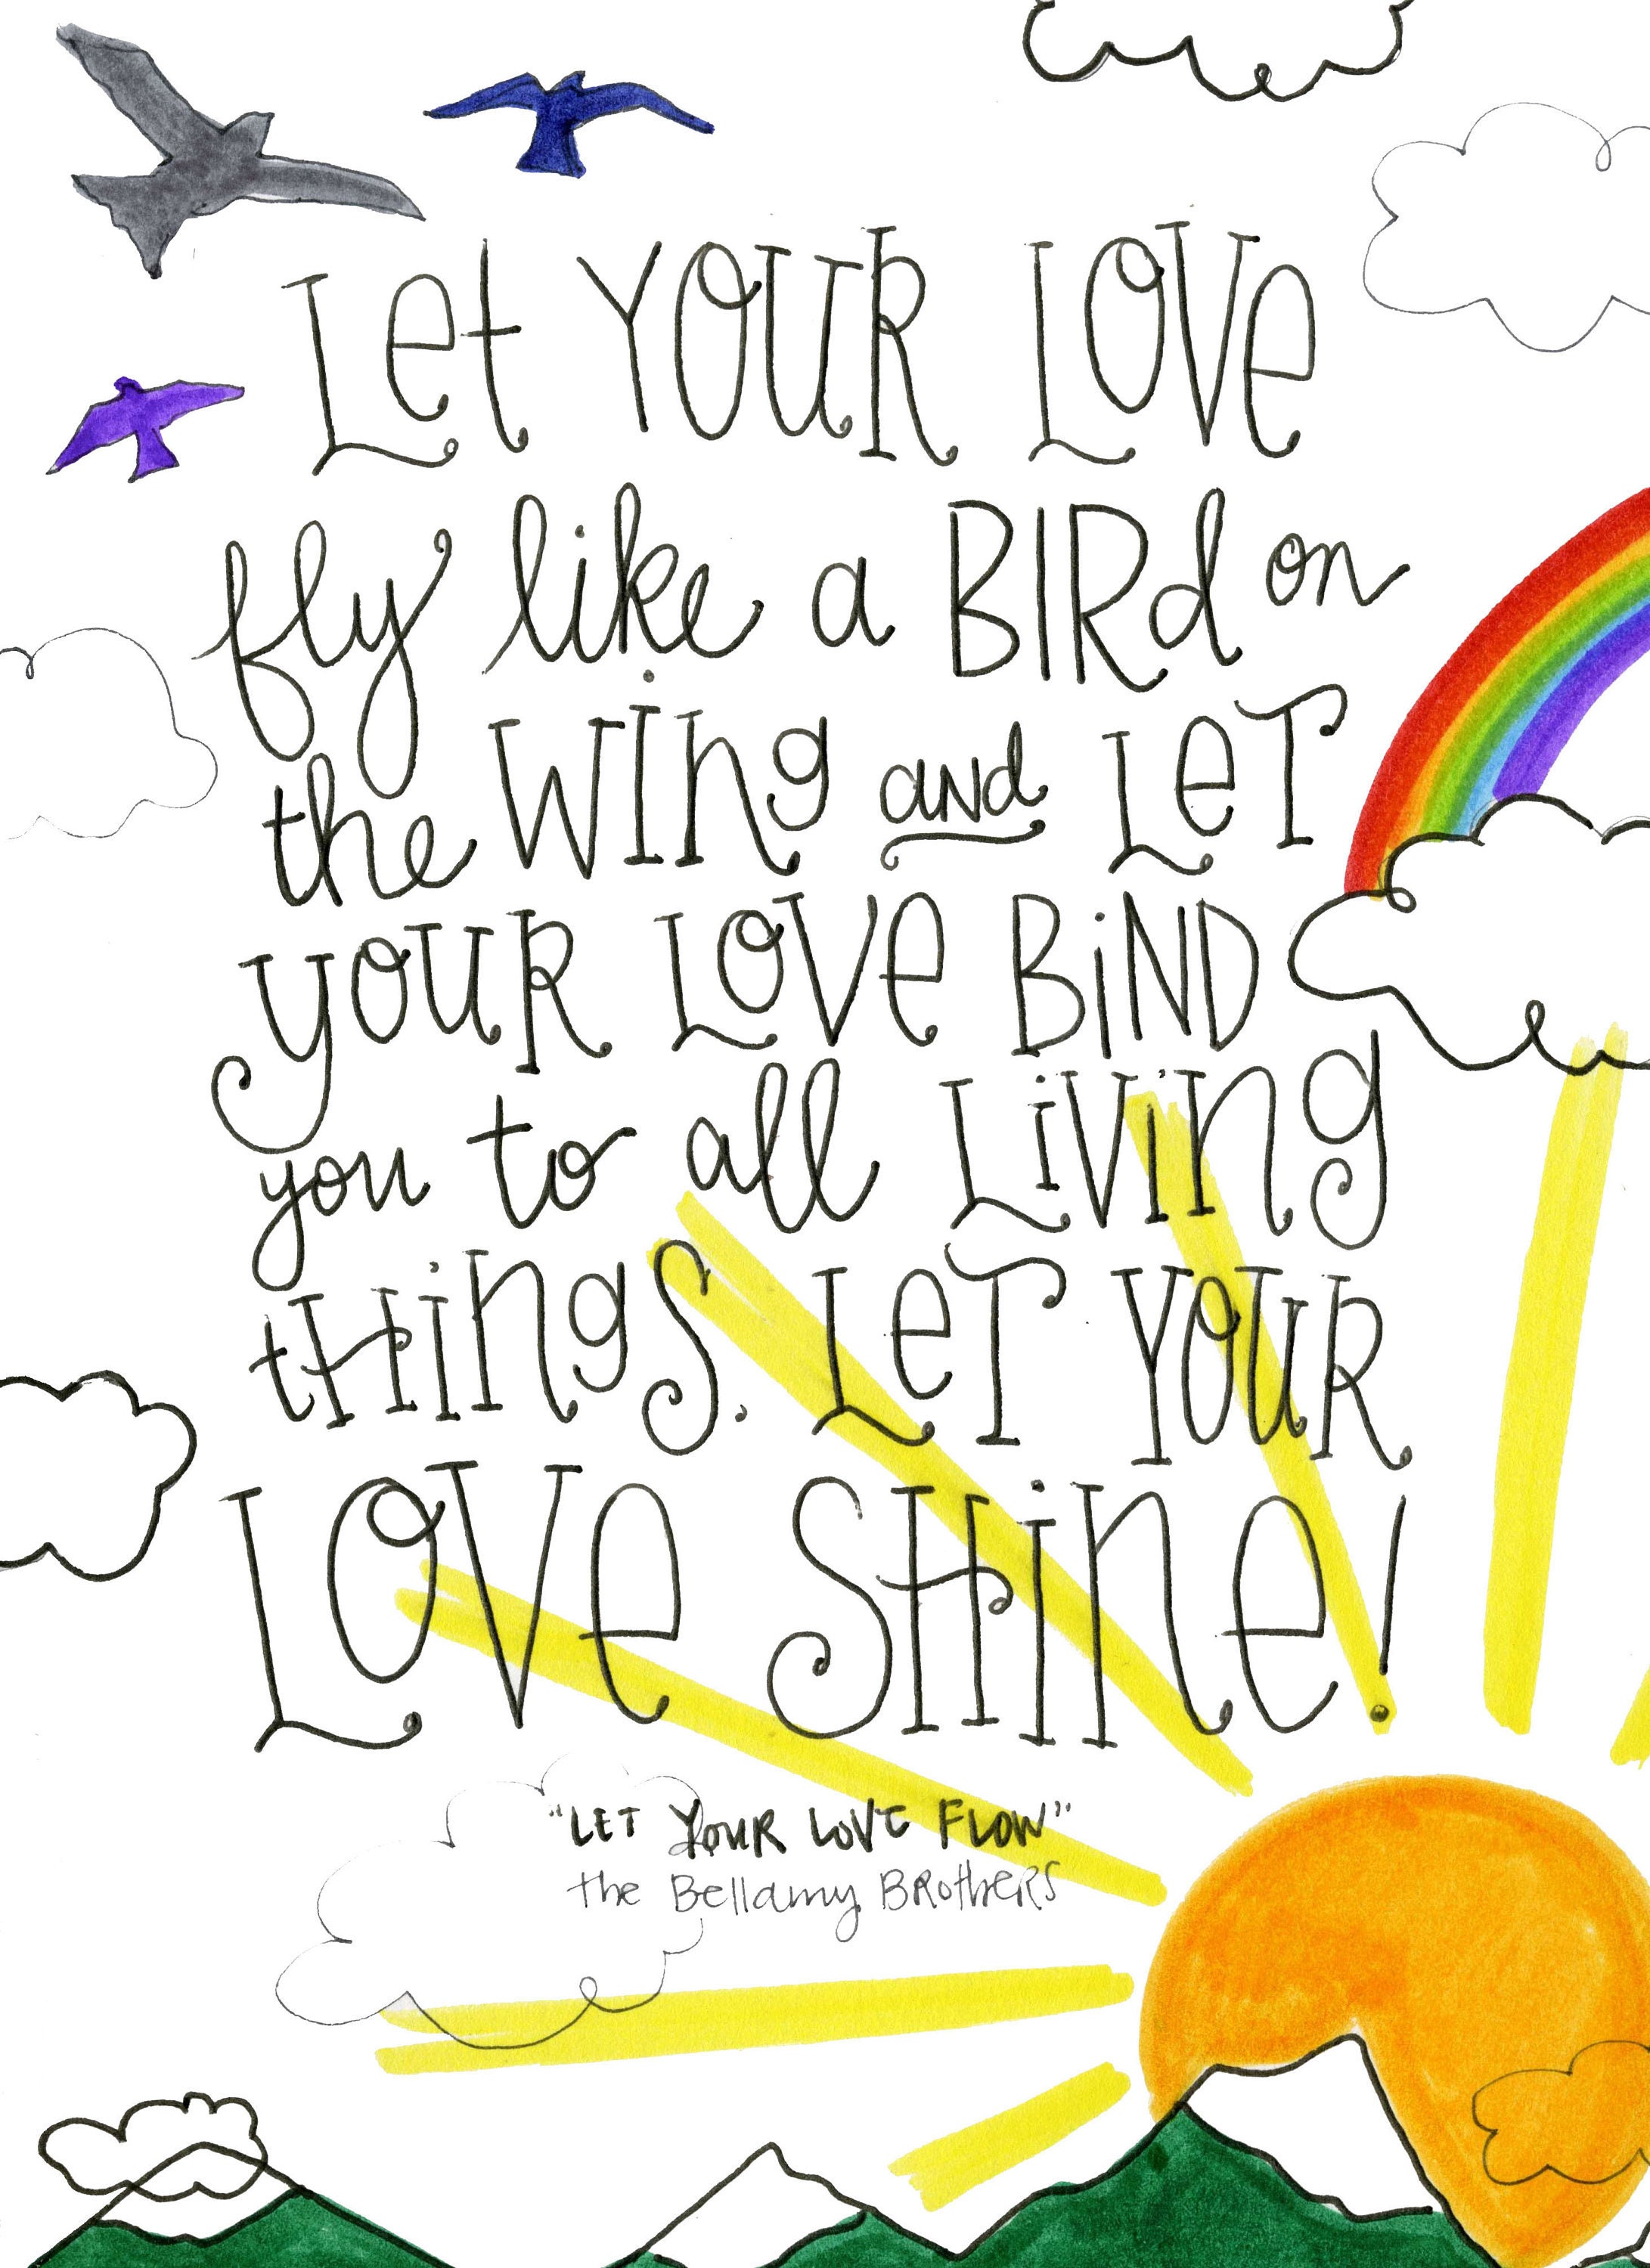 Let YOUR LOVe
fly like a BIRd on
the WINg and LeT
YOUR LOVe BiND
you to all LiViNg
tHiNgS. LeT YOUR
LOVe SHiNe!
"LET YOUR LOVE FLOW"
the Bellamy BRotheRS